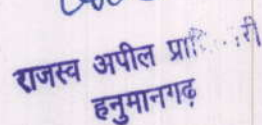 राजस्व अपील
हनुमानगढ़